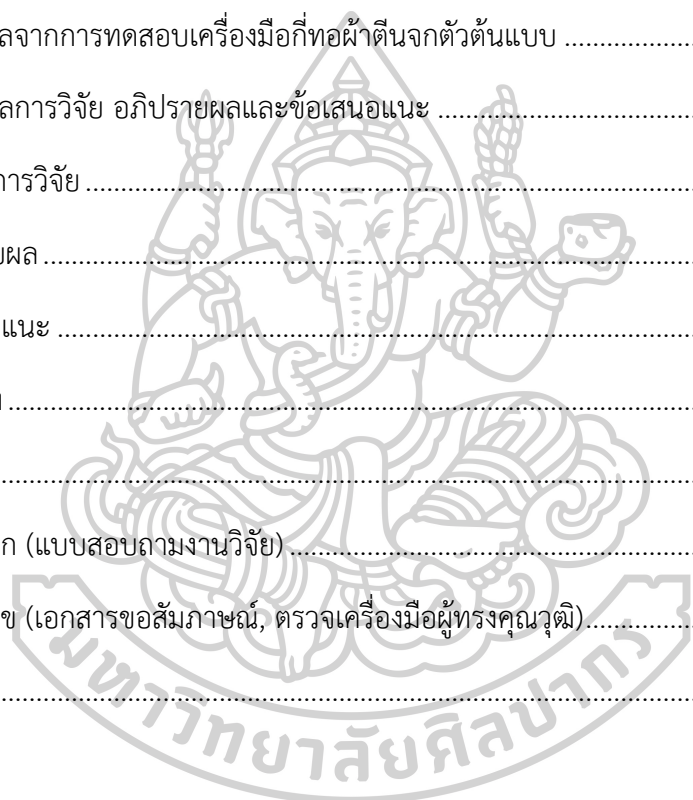 ลจากการทดสอบเครื่องมือกี่ทอผ้าตีนจกตัวต้นแบบ ....................
ลการวิจัย อภิปรายผลและข้อเสนอแนะ ........................................
การวิจัย ................................................................................................
ยผล ......................................................................................................
แนะ ....................................................................................................
................................................................................................
................................................................................................
ก (แบบสอบถามงานวิจัย) ................................................................
ข (เอกสารขอสัมภาษณ์, ตรวจเครื่องมือผู้ทรงคุณวุฒิ)..................
................................................................................................
มหาวิทยาลัยศิลปากร